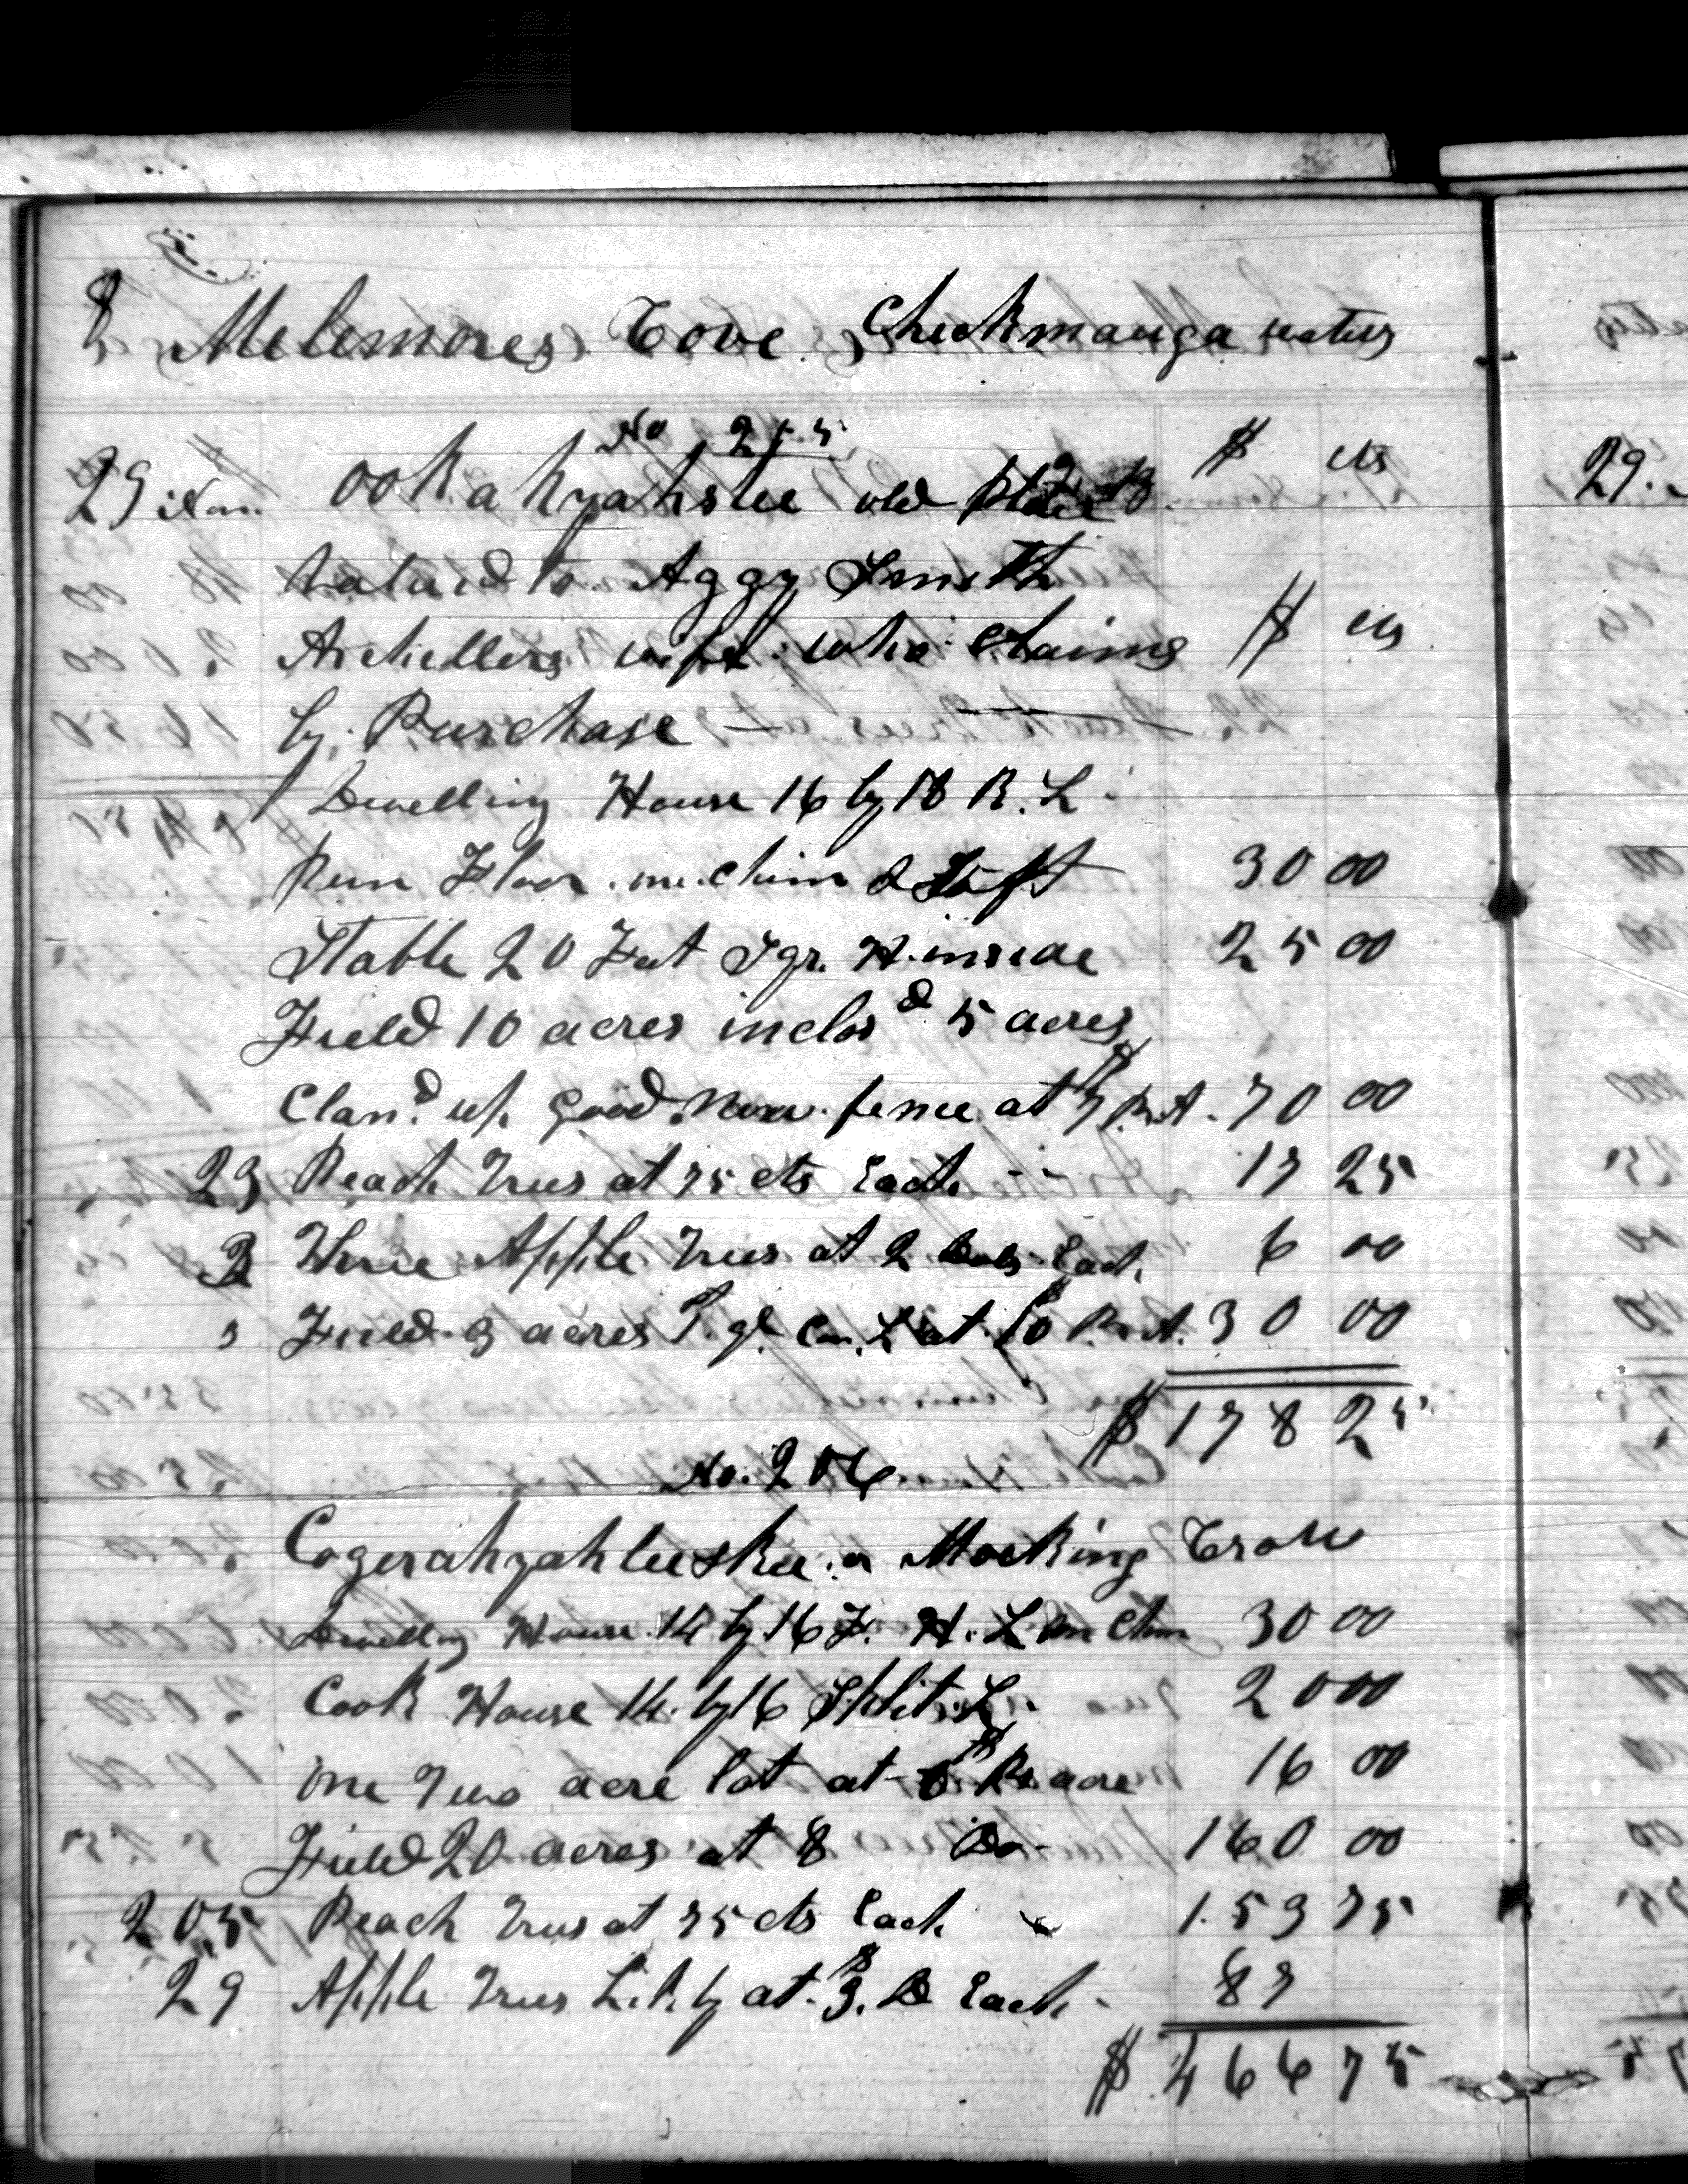 8 Mclemores Cove Chickmauga waters
No 205 $ cts
29 Nov. Ookahyahstee old place
valued to Aggy Smith
Archillers wife who claims $ cts
by Purchase
Dwelling House 16 by 18 R. L
Pun Floor. mu. chim & loft 30 00
Stable 20 Feet Sqr. H. inside 25 00
Field 10 acres inclosd 5 acres
Cland up. good. new. fence at $7 Pr. A. 70 00
23 Peach Trees at 75 cts Each 17 25
3 Three Apple Trees at 2 Dols Each 6 00
Field 3 acres at $10 Pr. A. 30 00
$ 178 25
No. 206
Cogerahyahleeskee. or Mocking Crow
Dwelling House 14 by 16 F. H. L Mu Chim 30 00
Cook House 14 by 16 Split L. 20 00
one Two acre lot at $8 Pr. acre 16 00
Field 20 acres at 8 Do. 160 00
205 Peach Trees at 75 cts Each 1.53 75
29 Apple Trees at $3. Each 87
$ 466 75
29.